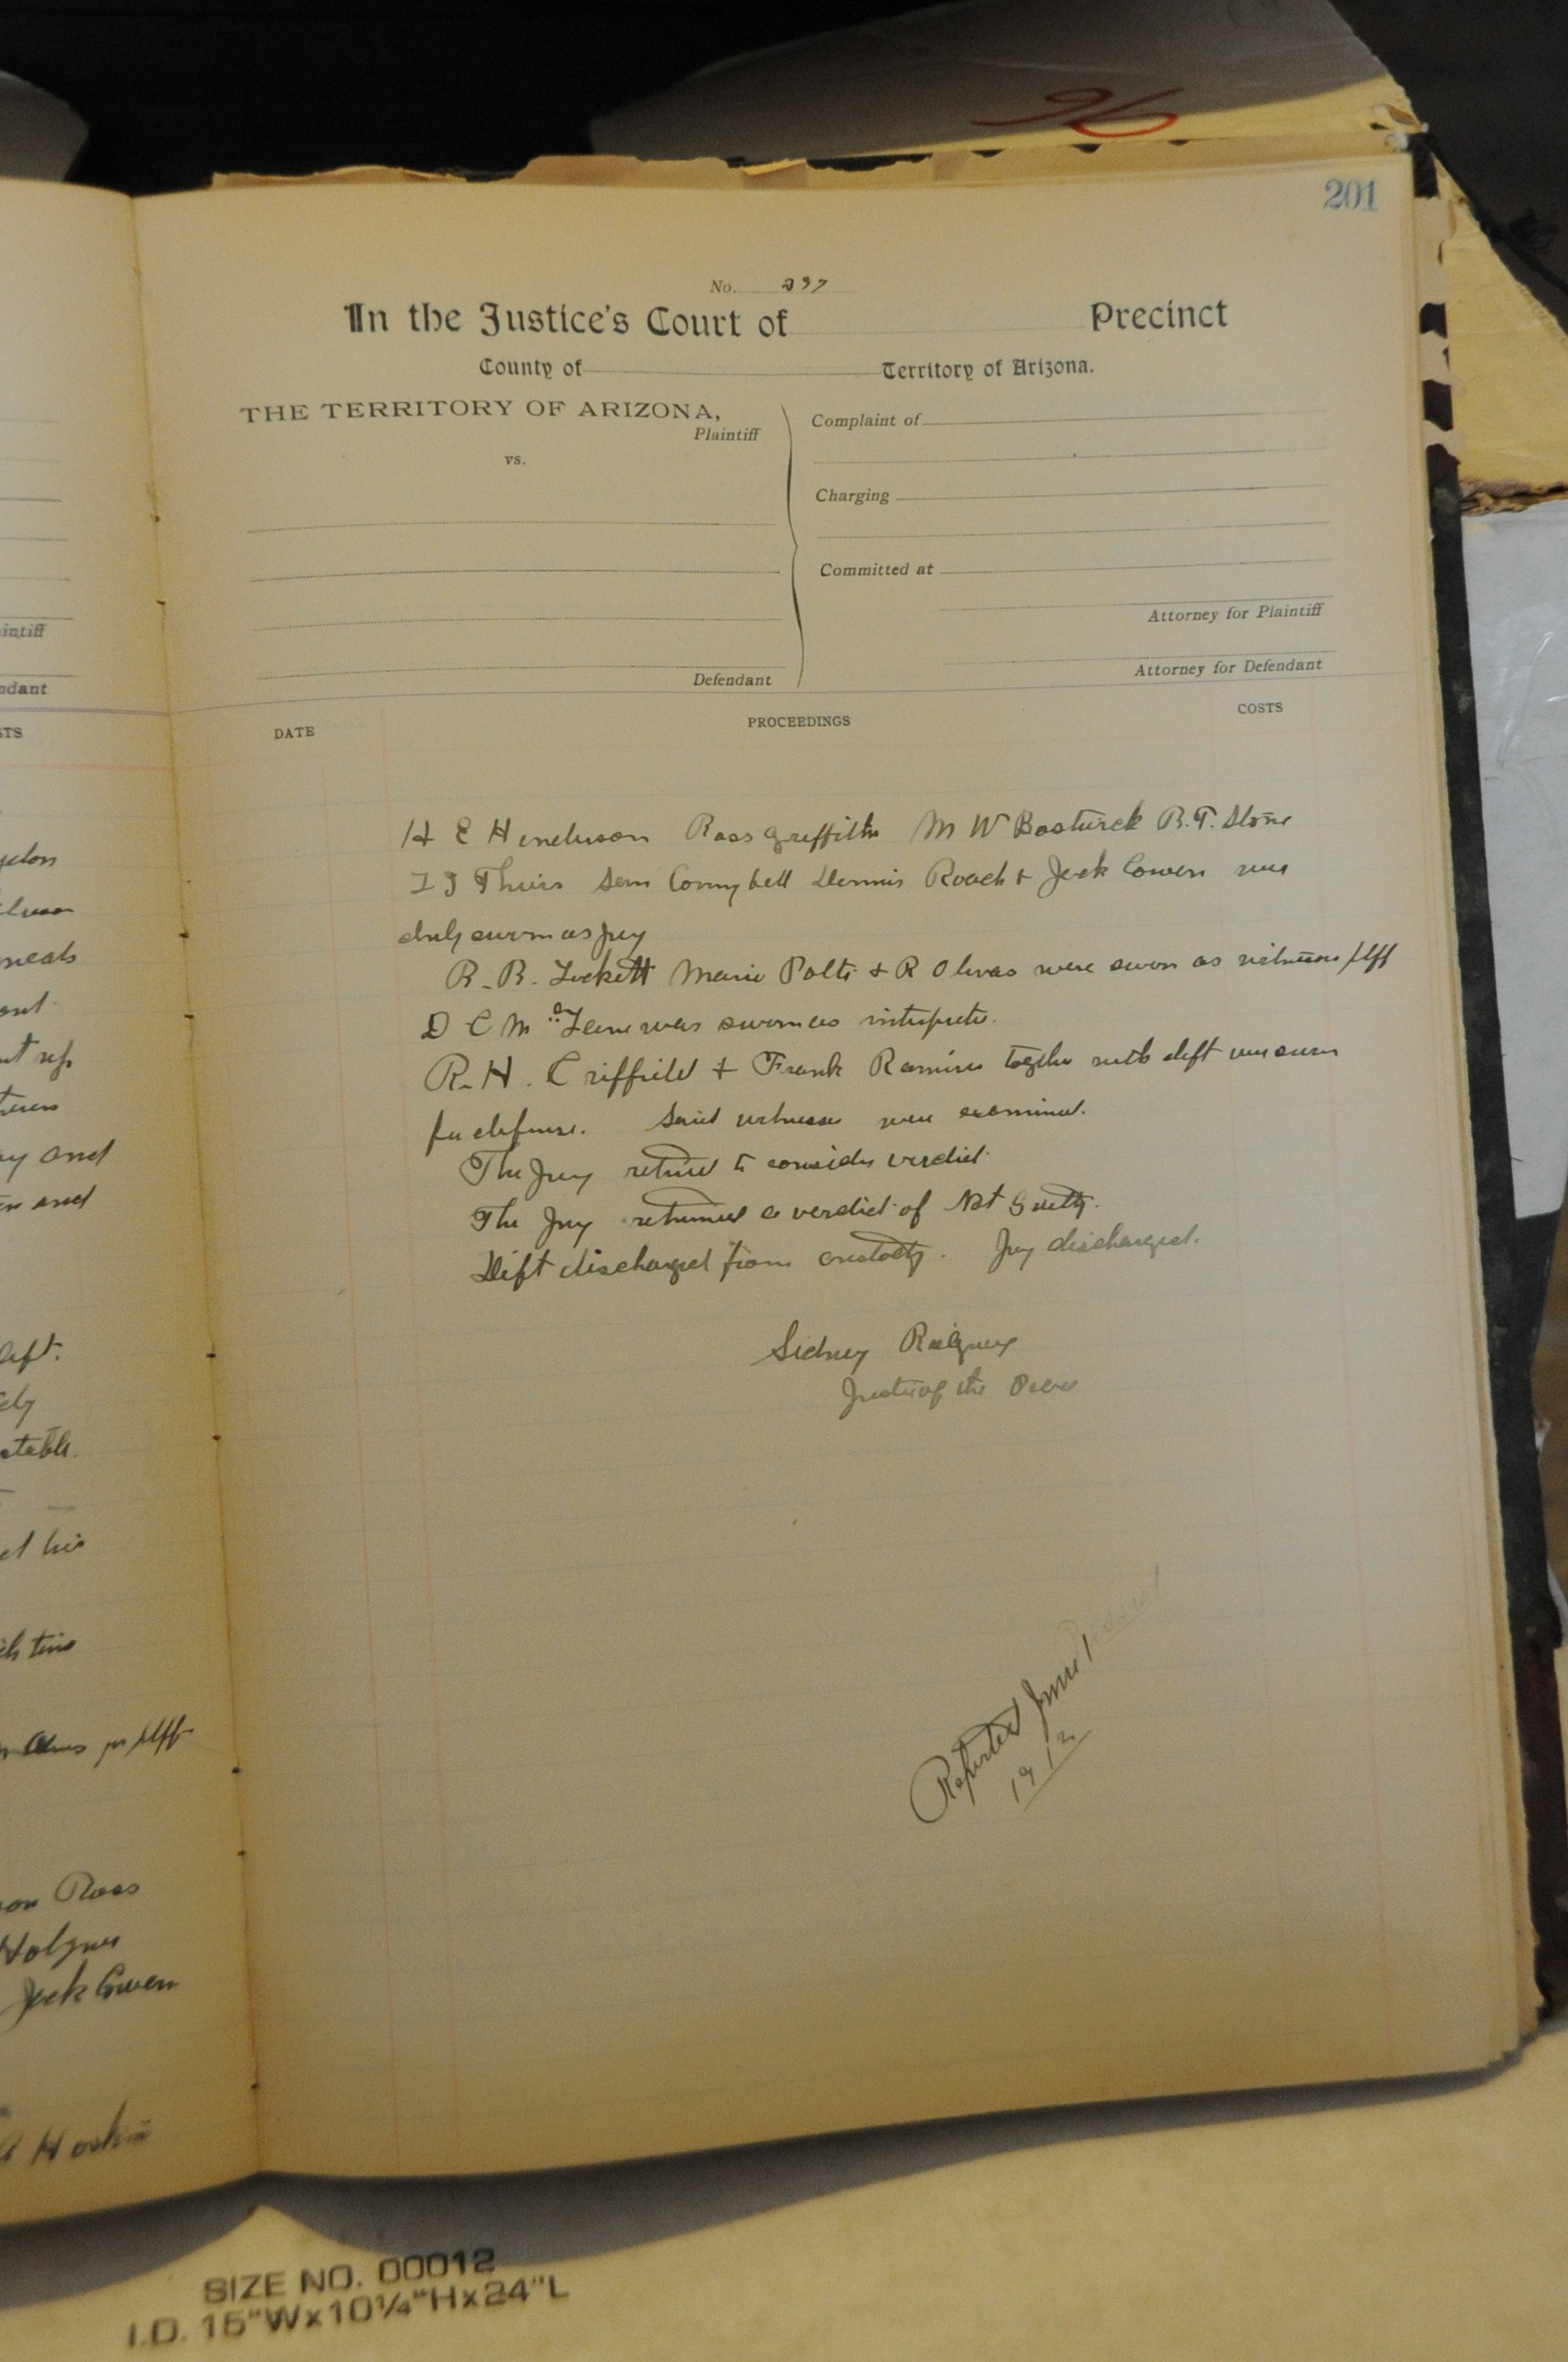 96
201
No. 237
In the Justice's Court of Precinct
County of Territory of Arizona.
THE TERRITORY OF ARIZONA,
Plaintiff
vs.
Defendant
Complaint of
Charging
Committed at
Attorney for Plaintiff
Attorney for Defendant
DATE PROCEEDINGS COSTS
H E Henderson Ross Griffith M W Bostwick R.T. Stone
Sam Campbell Dennis Roach & Jack Cowen were
duly sworn as jury
R. R. Lockett Marie & R Olivas were sworn as witnesses plff
D C M was sworn as interpreter.
R. H. Criffield & Frank Ramirez together with deft were sworn
for defense. Said witnesses were examined.
The Jury retired to consider verdict
The Jury returned a verdict of Not Guilty.
Deft discharged from custody. Jury discharged.
Sidney
Justice of the Peace
Reported June
1912
intiff
ndant
STS
ont
and
and
deft.
ely
stable.
et his
ch time
plff
on Ross
Jack Cowen
SIZE NO. 00012
I.D. 15"Wx10¼"Hx24"L